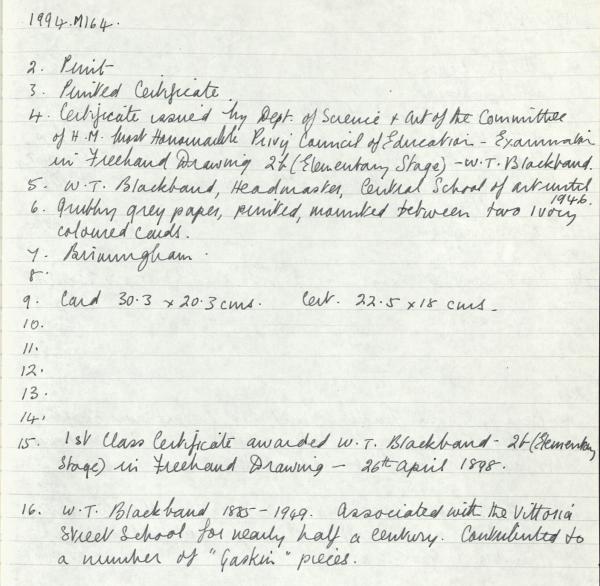 1994.M164.
2. Print
3. Printed Certificate.
4. Certificate issued by Dept. of Science + Art of the Committee
of H.M. Most Honourable Privy Council of Education - Examination
in Freehand Drawing 2b (Elementary Stage) - W.T. Blackband.
5. W.T. Blackband, Headmaster, Central School of Art until
1946.
6. Grubby grey paper, printed, mounted between two ivory
coloured cards.
7. Birmingham.
8.
9. Card 30.3 x 20.3 cms. Cert. 22.5 x 18 cms.
10.
11.
12.
13.
14.
15. 1st Class Certificate awarded W.T. Blackband - 2b (Elementary
Stage) in Freehand Drawing - 26th April 1898.
16. W.T. Blackband 1885-1949. Associated with the Vittoria
Street School for nearly half a century. Contributed to
a number of "Gaskin" pieces.